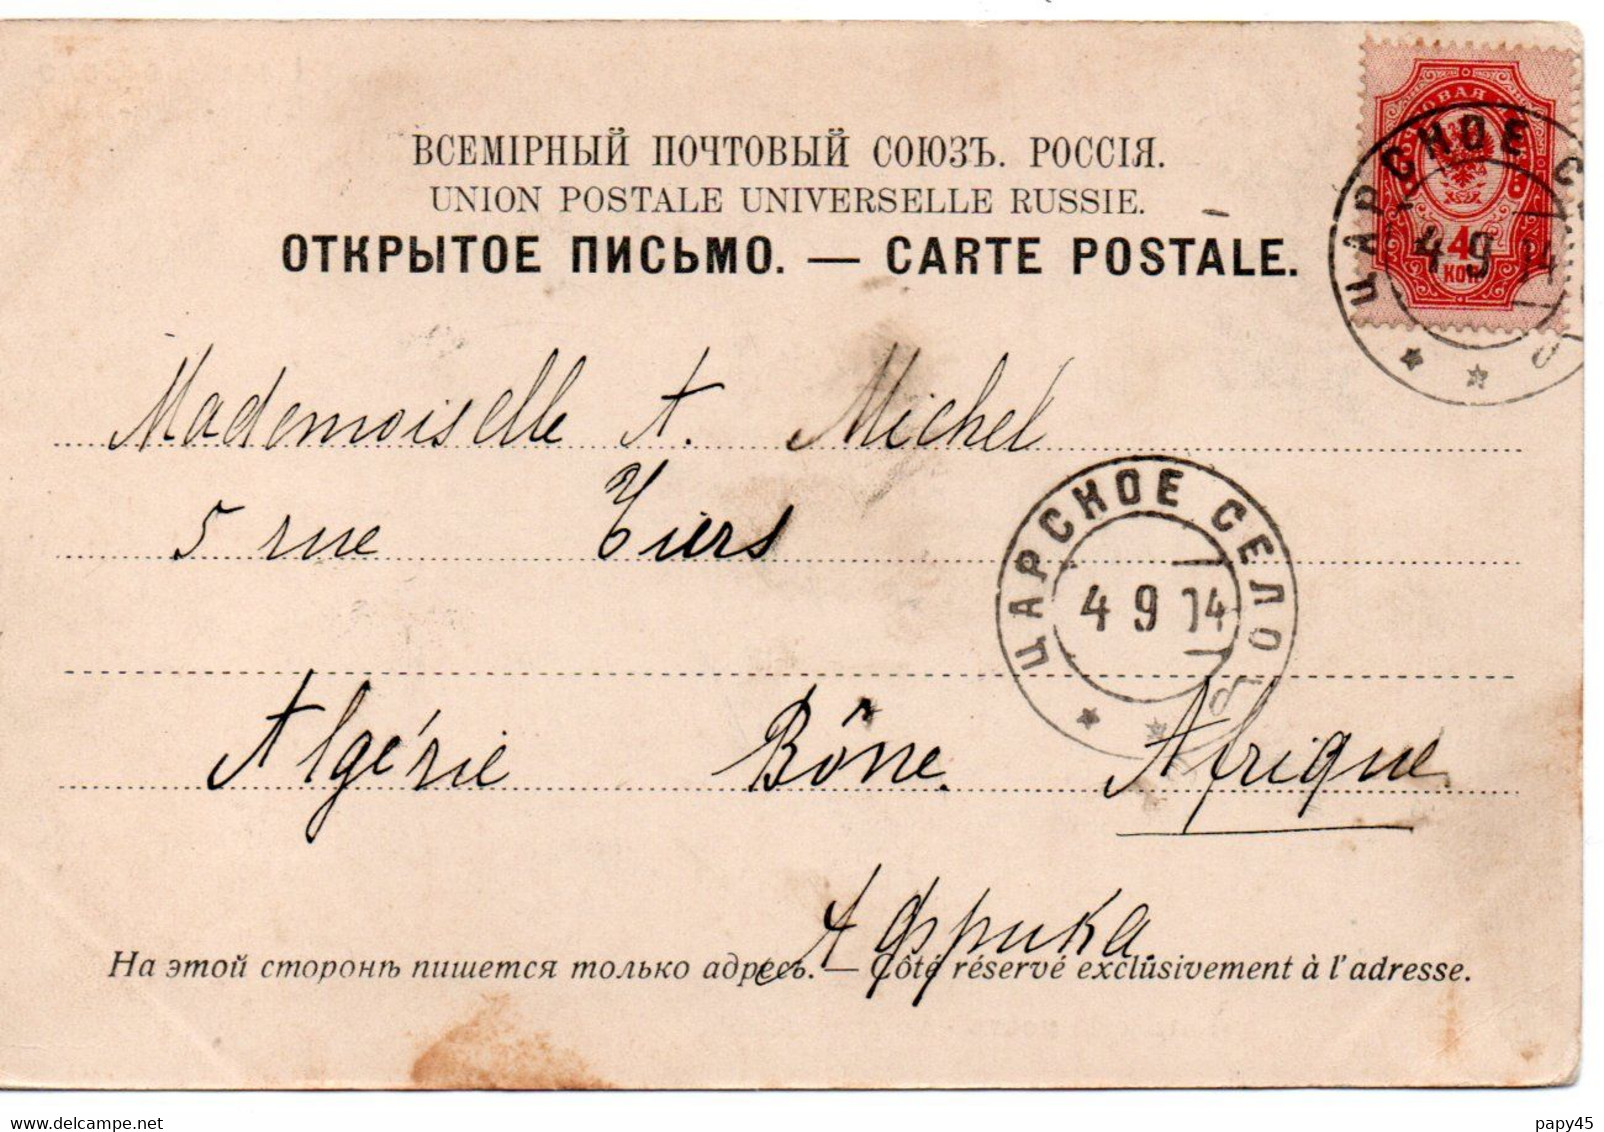 ВСЕМІРНЫЙ ПОЧТОВЫЙ СОЮЗЪ. РОССІЯ.
UNION POSTALE UNIVERSELLE RUSSIE.
ОТКРЫТОЕ ПИСЬМО. — CARTE POSTALE.
ЦАРСКОЕ СЕ
4 9 14
4
КОП
Mademoiselle A. Michel
5 rue Tiers
ЦАРСКОЕ СЕЛО
4 9 14
Algérie Bône. Afrique
Африка.
На этой сторонѣ пишется только адресъ. — Côté réservé exclusivement à l'adresse.
delcampe.net
papy45